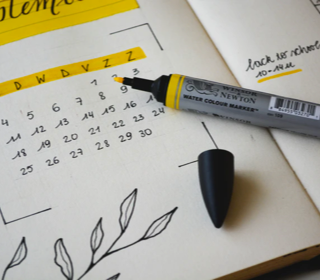 September
D W D V Z Z
1 2 3
4 5 6 7 8 9
11 12 13 14 15 16
18 19 20 21 22 23 24
25 26 27 28 29 30
back to school
10-14u
WINSOR
NEWTON
WATER COLOUR MARKER